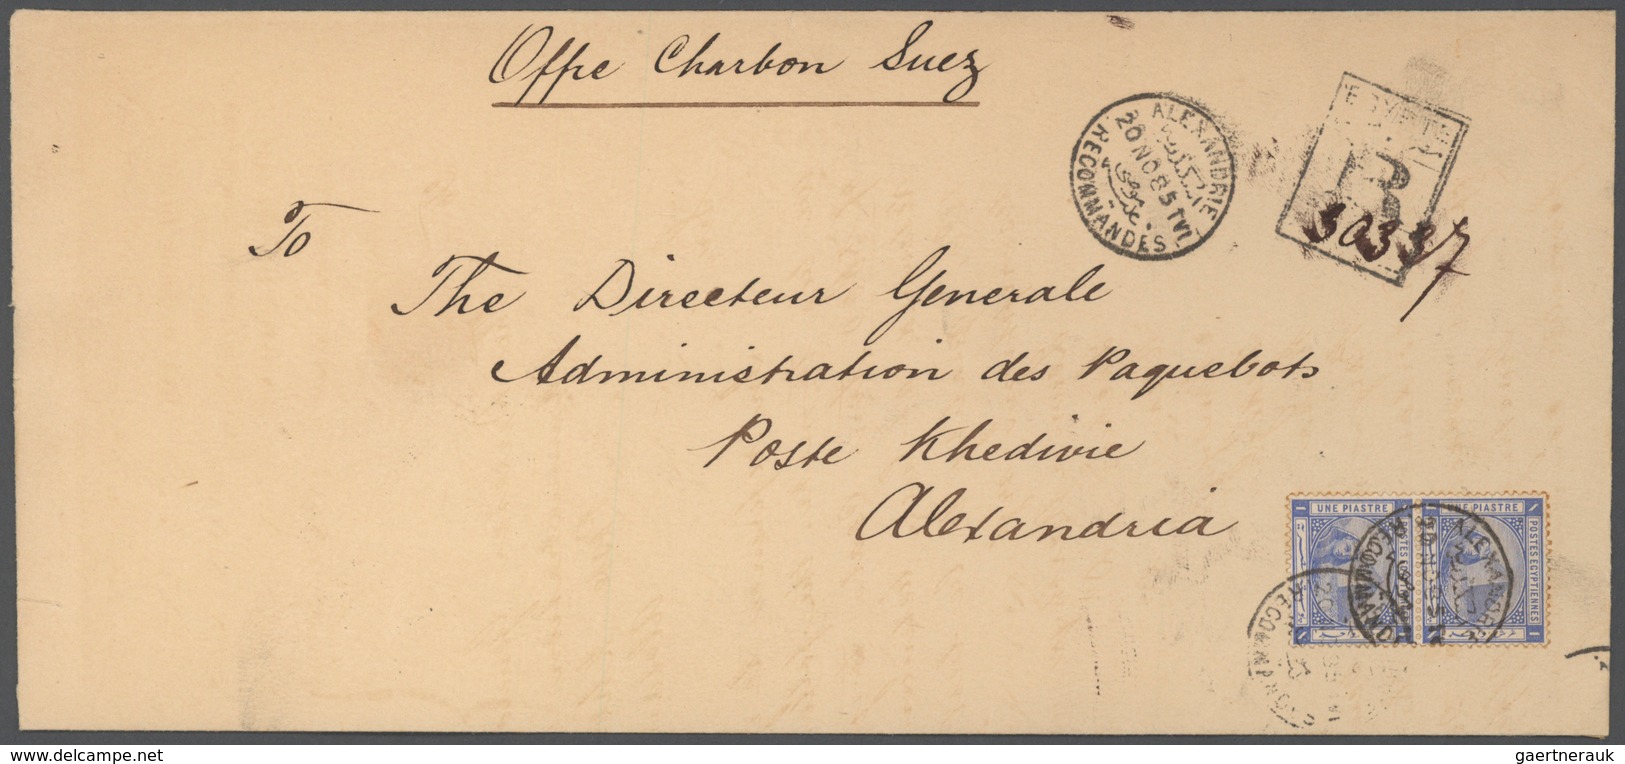 Offre Charbon Suez
ALEXANDRIE
20 NO 85 T VI
RECOMMANDES
R
30337
To
The Directeur Generale
Administration des Paquebots
Poste Khedivie
Alexandria
UNE PIASTRE
UNE PIASTRE
POSTES EGYPTIENNES
ALEXANDRIE
RECOMMAND
RECOMMANDES
delcampe.net
gaertnerauk